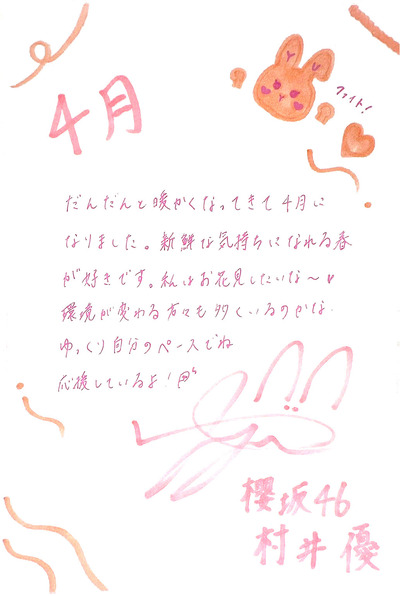 4月
YU
ファイト!
だんだんと暖かくなってきて4月に
なりました。新鮮な気持ちになれる春
が好きです。私はお花見したいな〜
環境が変わる方々も多くいるのかな.
ゆっくり自分のペースでね
応援しているよ!
櫻坂46
村井優